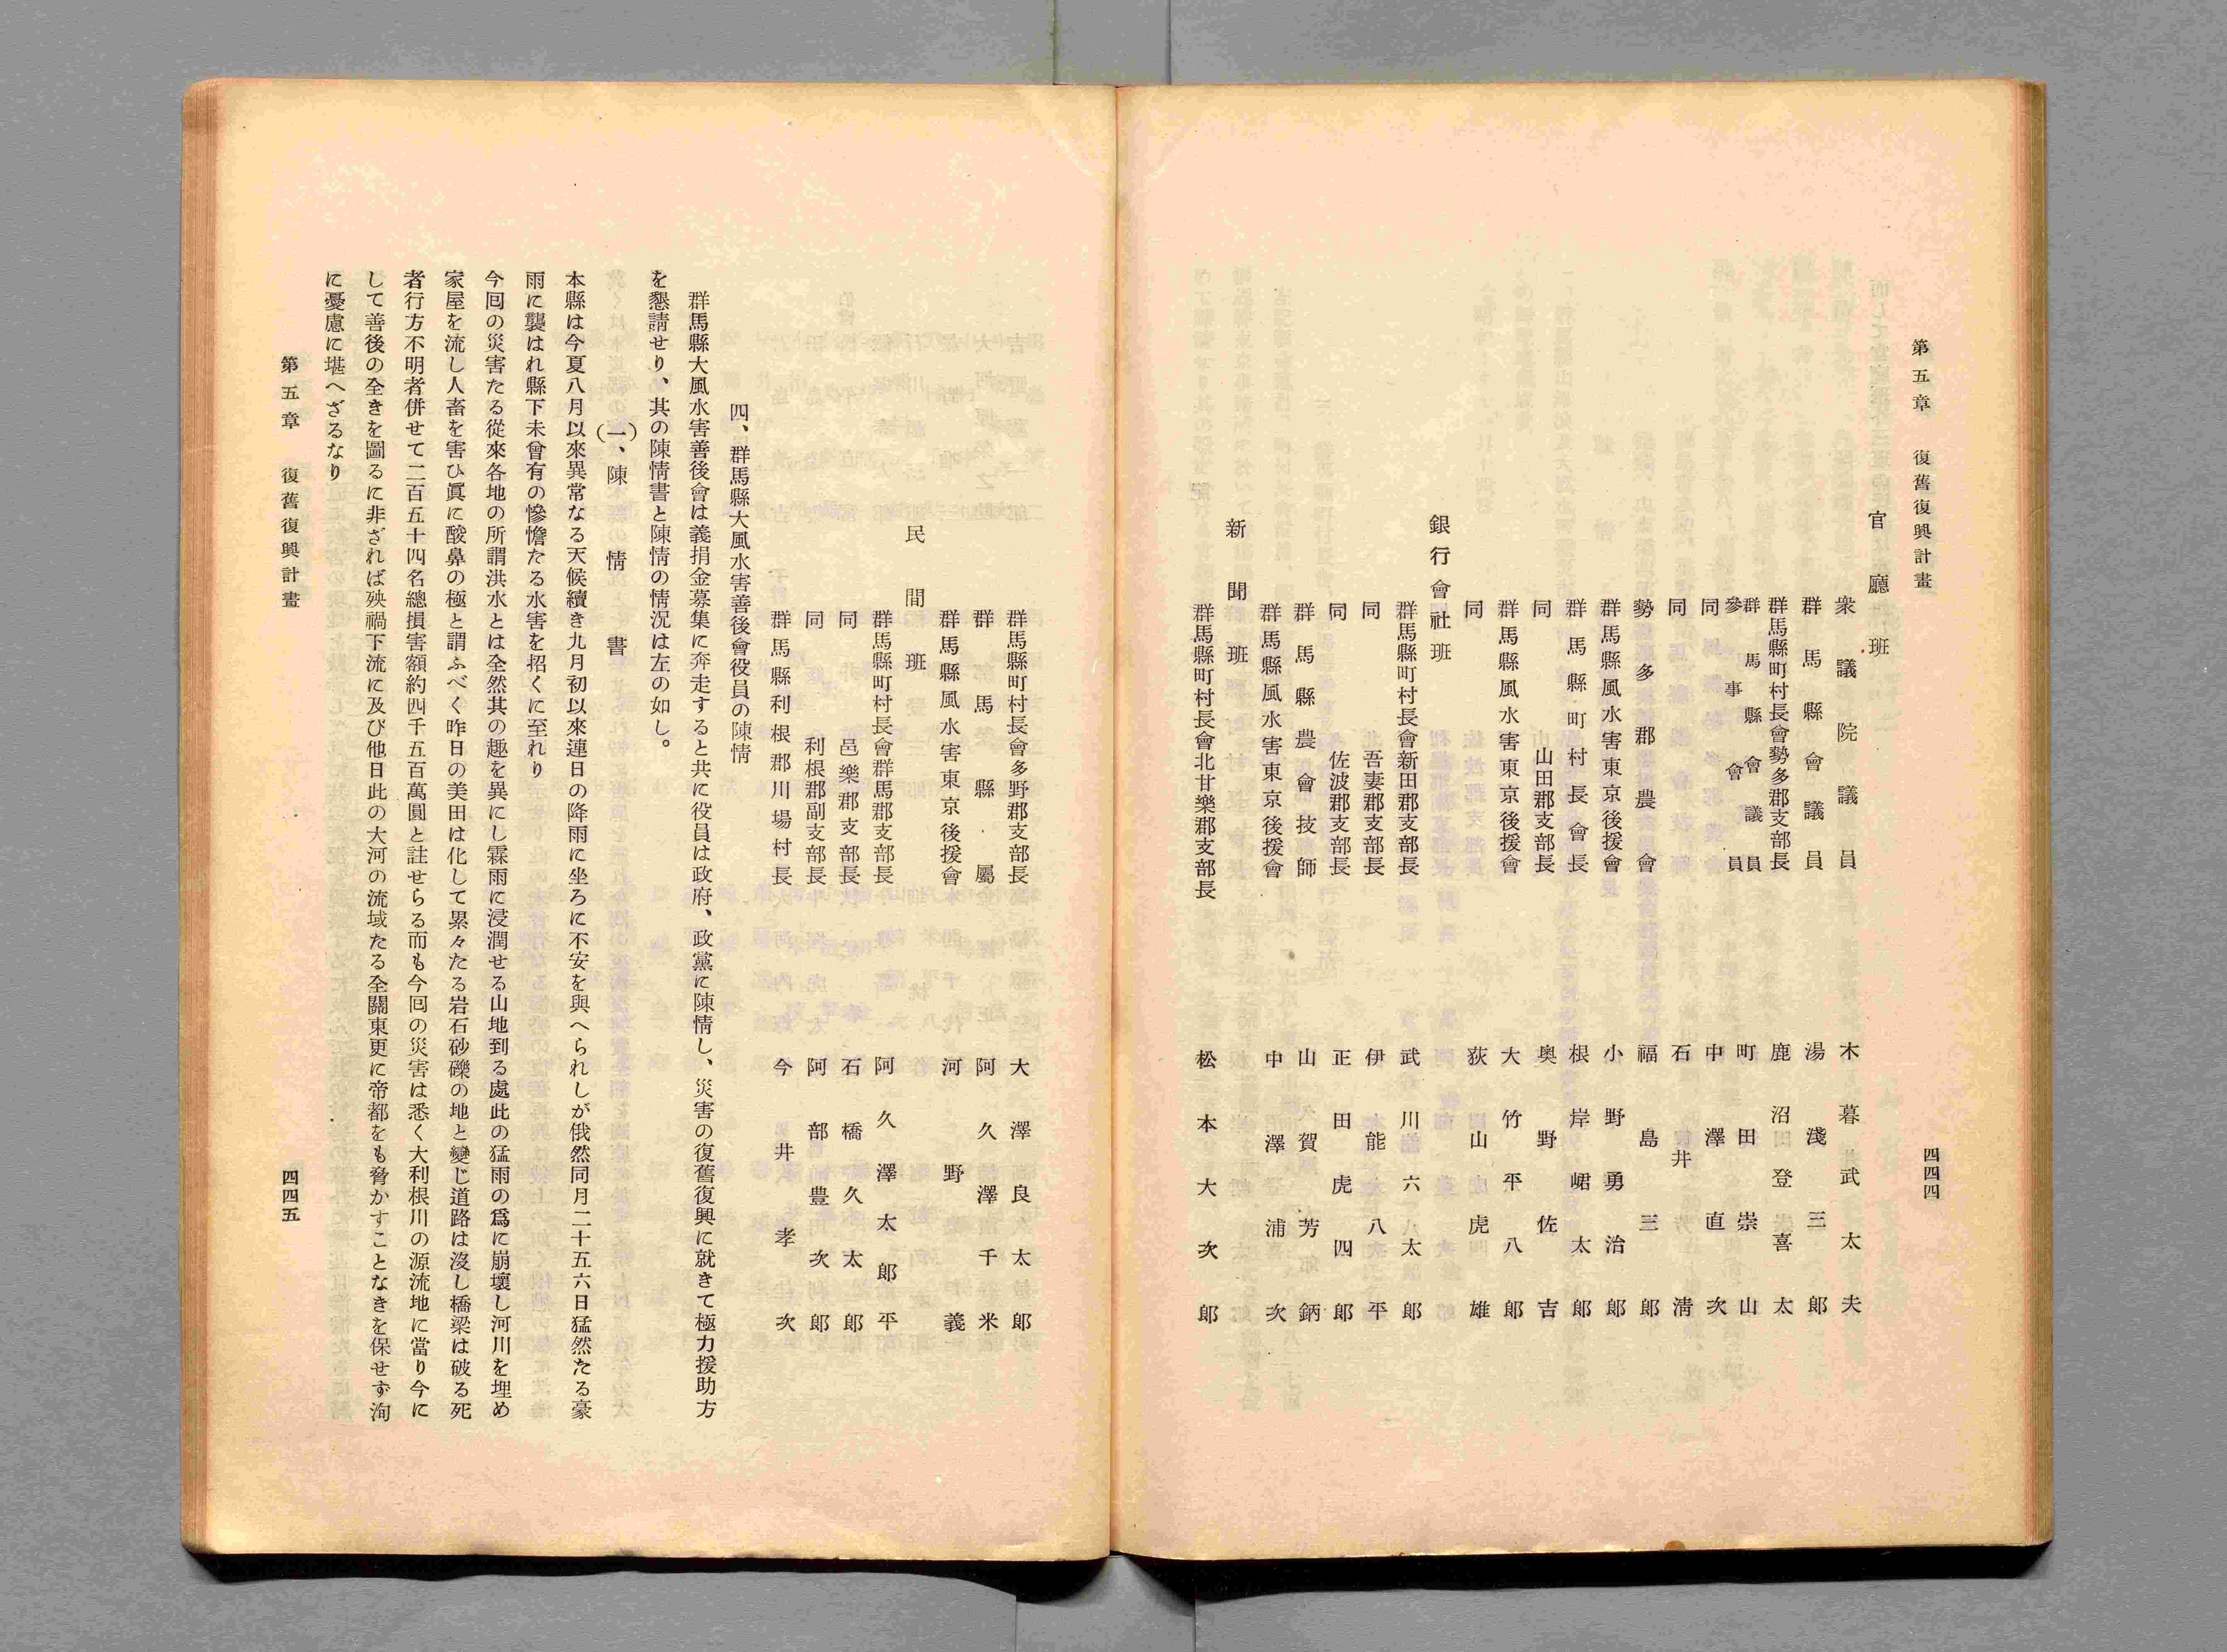 第五章　復舊復興計畫　四四四
官廳班
衆議院議員　木暮武太夫
群馬縣會議員　湯淺三郎
群馬縣町村長會勢多郡支部長　鹿沼登喜太
群馬縣會議員參事會員　町田崇山
同　中澤直次
同　石井清
勢多郡農會　福島三郎
群馬縣風水害東京後援會　小野勇治郎
群馬縣町村長會長　根岸峮太郎
同　山田郡支部長　奧野佐吉
群馬縣風水害東京後援會　大竹平八郎
同　荻山虎雄
銀行會社班
群馬縣町村長會新田郡支部長　武川六太郎
同　吾妻郡支部長　伊能八平
同　佐波郡支部長　正田虎四郎
群馬縣農會技師　山賀芳鉚
群馬縣風水害東京後援會　中澤浦次
新聞班
群馬縣町村長會北甘樂郡支部長　松本大次郎
群馬縣町村長會多野郡支部長　大澤良太郎
群馬縣屬　阿久澤千米
群馬縣風水害東京後援會　河野義一
民間班
群馬縣町村長會群馬郡支部長　阿久澤太郎平
同　邑樂郡支部長　石橋久太郎
同　利根郡副支部長　阿部豊次郎
群馬縣利根郡川場村長　今井孝次
四、群馬縣大風水害善後會役員の陳情
群馬縣大風水害善後會は義捐金募集に奔走すると共に役員は政府、政黨に陳情し、災害の復舊復興に就きて極力援助方
を懇請せり、其の陳情書と陳情の情況は左の如し。
（一、陳情書）
本縣は今夏八月以來異常なる天候續き九月初以來連日の降雨に坐ろに不安を與へられしが俄然同月二十五六日猛然たる豪
雨に襲はれ縣下未曾有の慘憺たる水害を招くに至れり
今回の災害たる從來各地の所謂洪水とは全然其の趣を異にし霖雨に浸潤せる山地到る處此の猛雨の爲に崩壞し河川を埋め
家屋を流し人畜を害ひ眞に酸鼻の極と謂ふべく昨日の美田は化して累々たる岩石砂礫の地と變じ道路は沒し橋梁は破る死
者行方不明者併せて二百五十四名總損害額約四千五百萬圓と註せらる而も今回の災害は悉く大利根川の源流地に當り今に
して善後の全きを圖るに非ざれば殃禍下流に及び他日此の大河の流域たる全關東更に帝都をも脅かすことなきを保せず洵
に憂慮に堪へざるなり
第五章　復舊復興計畫　四四五